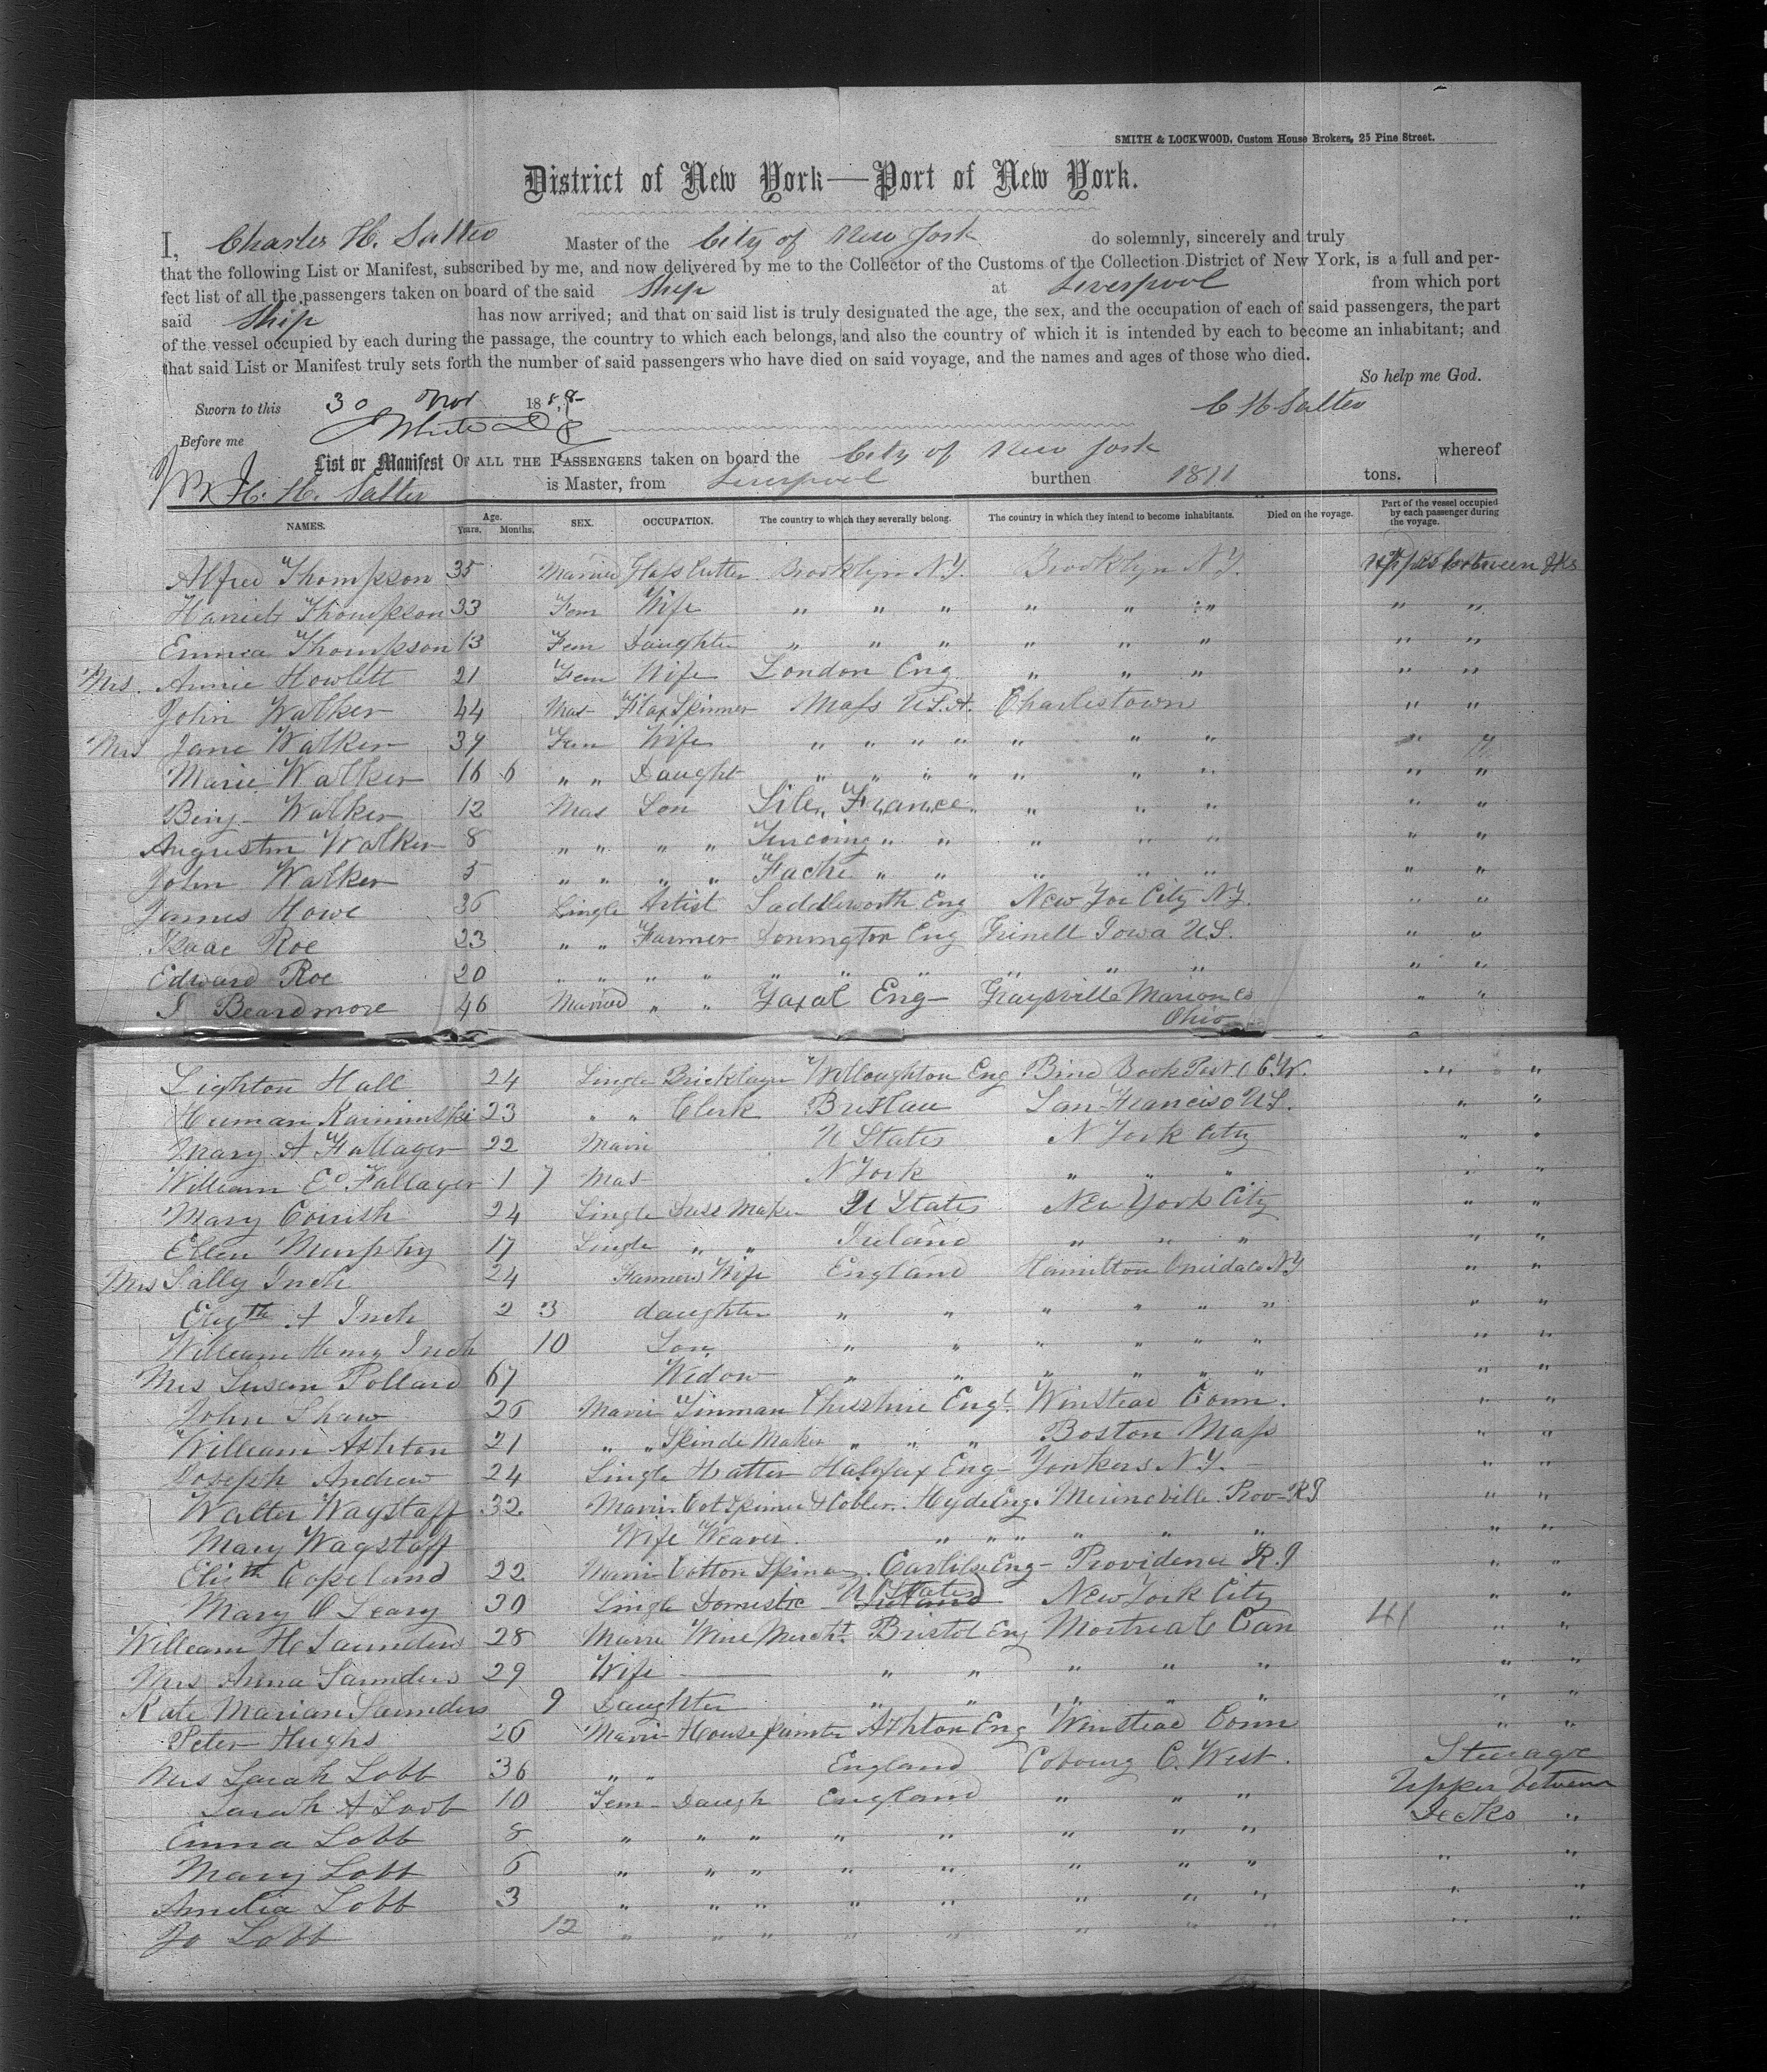 SMITH & LOCKWOOD, Custom House Brokers, 25 Pine Street.
District of New York—Port of New York.
I, Charles H. Salter Master of the City of New York do solemnly, sincerely and truly
that the following List or Manifest, subscribed by me, and now delivered by me to the Collector of the Customs of the Collection District of New York, is a full and per-
fect list of all the passengers taken on board of the said Ship at Liverpool from which port
said Ship has now arrived; and that on said list is truly designated the age, the sex, and the occupation of each of said passengers, the part
of the vessel occupied by each during the passage, the country to which each belongs, and also the country of which it is intended by each to become an inhabitant; and
that said List or Manifest truly sets forth the number of said passengers who have died on said voyage, and the names and ages of those who died.
So help me God.
Sworn to this 30 Nov 18 C H Salter
Before me
List or Manifest OF ALL THE PASSENGERS taken on board the City of New York whereof
H. Salter is Master, from Liverpool burthen tons.
NAMES. Age. Years. Months. SEX. OCCUPATION. The country to which they severally belong. The country in which they intend to become inhabitants. Died on the voyage. Part of the vessel occupied by each passenger during the voyage.
Alfred Thompson 35 Married Glass Cutter Brooklyn N.Y. Brooklyn N.Y. between Dks
Harriet Thompson 33 Fem Wife " " " " " " " "
Emma Thompson 13 Fem Daughter " " " " " " " "
Mrs. Annie Howlett 21 Fem Wife London Eng " " " " "
John Walker 44 Mas Flax Spinner Mass U.S.A. Charlestown " "
Mrs Jane Walker 39 Fem Wife " " " " " " " " "
Marie Walker 16 6 " " Daught " " " " " " " " "
Binj- Walker 12 Mas Son Lile France " " " " "
Augustin Walker 8 " " " " Turcoing " " " " " " "
John Walker 5 " " " " Fache " " " " " " "
James Howe 36 Single Artist Saddleworth Eng New Yor City N.Y. " "
Isaac Roe 23 " " Farmer Donington Eng Grinell Iowa U.S. " "
Edward Roe 20 " " " " " " " " " " " "
J Beardmore 46 Married " " Yaxal Eng- Graysville Marion Co " "
Ohio
Lighton Hall 24 Single Bricklayer Willoughton Eng C.W. " "
Herman 23 " " Clerk San Francisco U.S. " "
Mary A Fallager 22 Marri U States N York City " "
William Ed Fallager 1 7 Mas N York " " " " "
Mary Cornish 24 Single Dress Maker U States New York City " "
Ellen Murphy 17 Single " " Ireland " " " " "
Mrs Sally Inch 24 Farmers Wife England Hamilton Oneida Co N.Y " "
Elizth A Inch 2 3 daughter " " " " " " " "
William Henry Inch 10 Son " " " " " " " "
Mrs Susan Pollard 67 Widow " " " " " " " "
John Shaw 26 Marri Tinman Chesshire Engd Winstead Conn. " "
William Ashton 21 " " Spinde Maker " " " Boston Mass " "
Joseph Andrew 24 Single Hatter Halifax Eng- Yonkers N.Y. - " "
Walter Wagstaff 32 Marri Cot Spinner & Cobler. Hyde Eng. Merinoville Prov- R I " "
Mary Wagstaff Wife Weaver " " " " " " " "
Elizth Copeland 22 Marri Cotton Spinner Carlile Eng- Providence R.I " "
Mary O Leary 30 Single Domestic U States Ireland New York City " "
William H Saunders 28 Marri Wine Mercht. Bristol Eng Montreal Can 41 " "
Mrs Anna Saunders 29 Wife " " " " " " "
Kate Marian Saunders 9 Daughter " " " " " " "
Peter Hughs 26 Marri House painter Ashton Eng Winstead Conn " "
Mrs Sarah Lobb 36 " " England Cobourg C. West. Steerage
Sarah A Lobb 10 Fem- Daugh England " " " Upper between
Emma Lobb 8 " " " " " " " " Decks "
Mary Lobb 6 " " " " " " " " " "
Amelia Lobb 3 " " " " " " " " " "
Jo Lobb 12 " " " " " " " " " "